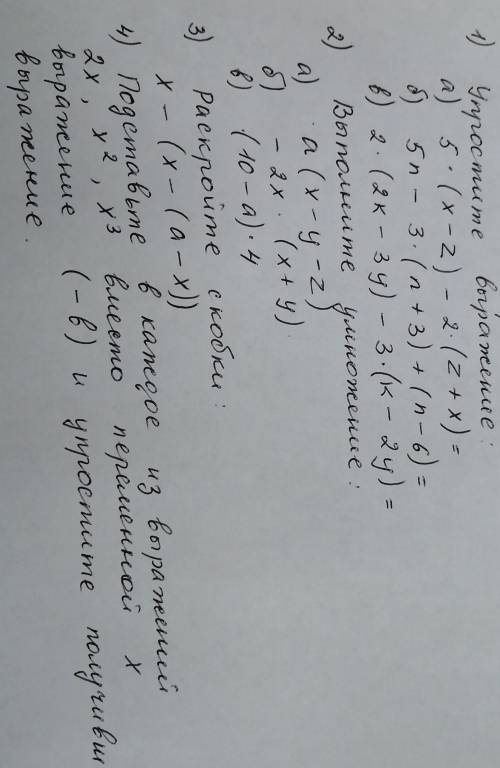 1) Упростите выражение:
а) 5·(x-z)-2·(z+x)=
б) 5n-3·(n+3)+(n-6)=
в) 2·(2к-3y)-3·(к-2y)=
2) Выполните умножение:
а) a(x-y-z)
б) -2x·(x+y).
в) (10-a)·4
3) Раскройте скобки:
x-(x-(a-x))
4) Подставьте в каждое из выражений
2x, x², x³ вместо переменной x
выражение (-в) и упростите получивш
выражение.